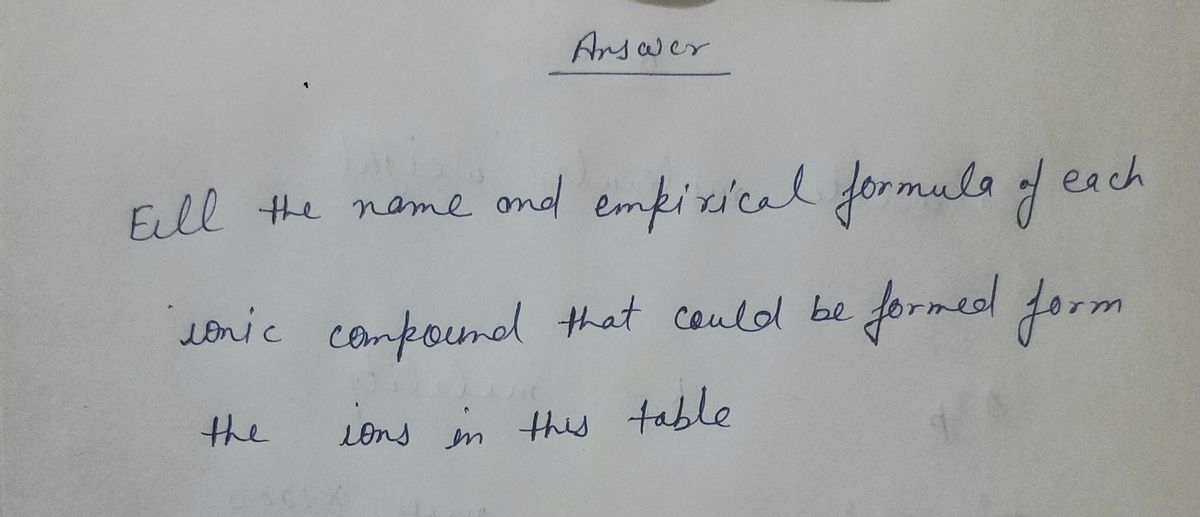 Answer
Fill the name and empirical formula of each
ionic compound that could be formed form
the ions in this table